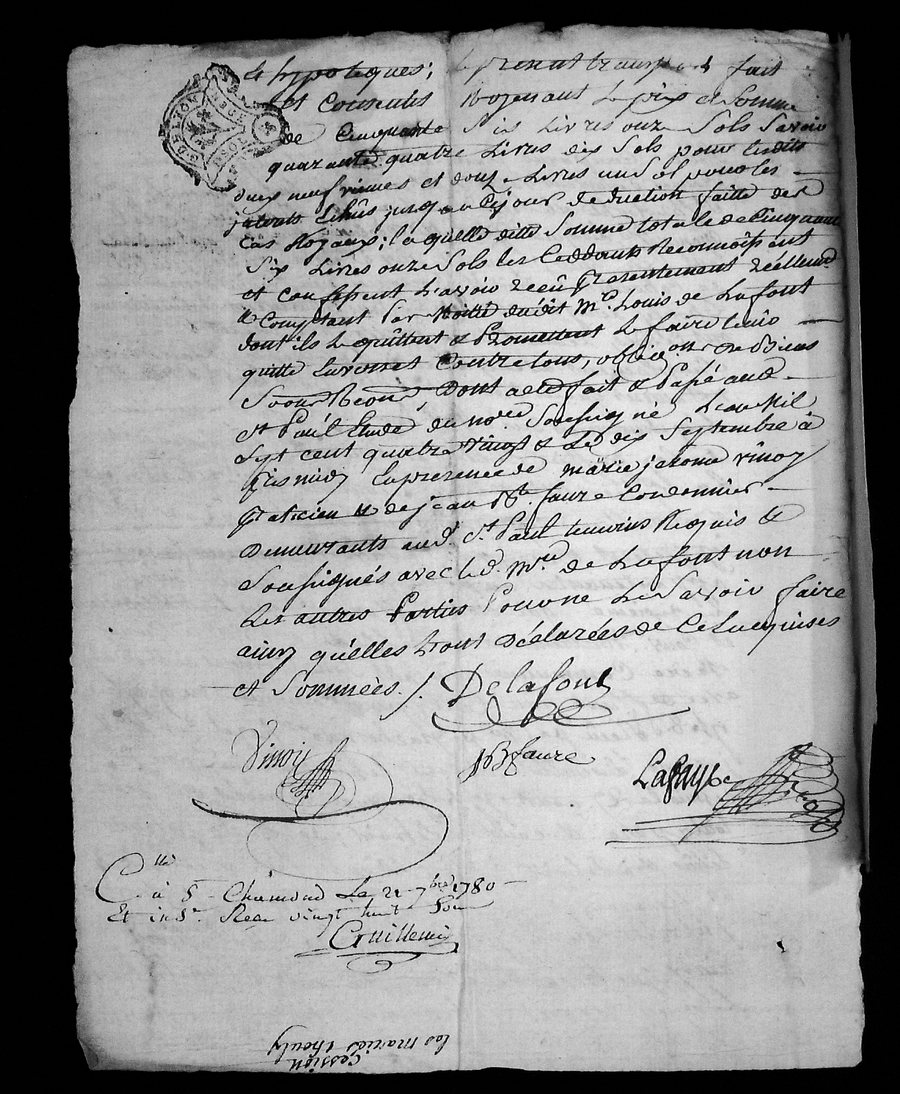 & hypoteques; le present transport fait
et Consenti Moyenant Le prix et Somme
de Cinquante Six Livres onze Sols Savoir
quarante quatre Livres dix Sols pour
deux neuf viemes et douze Livres un Sol pour les
jusqu'a Ce jour deduction faitte des
Cas Royaux; laquelle ditte Somme totale de Cinquante
Six Livres onze Sols les Ceddants Reconnoissent
et confessent L'avoir reçû Presentement réellement
& Comptant Par dudit Mre. Louis de Lafont
dont ils Le quittent & Promettent Le faire tenir
quitte Envers & Contre tous, de Biens
dont acte fait & Passé aud.
St. Paul Etude du nore. Soussigné L'an Mil
Sept cent quatre Vingt & Le dix Septembre à
presence de marie jerome vinoy
Praticien & de jean Bte. faure Cordonnier
Demeurants aud. St. Paul temoins Requis &
Soussignés avec led. Mre de Lafont non
Les autres Parties Pour ne Le Savoir faire
ainsy qu'elles L'ont déclarées de Ce Enquises
et Sommées ./. Delafont
Vinoy
jB faure
C.lle à St. Chamond Le 21 7bre 1780
Et in St. Reçu vingt huit Sous
Guillemin
Cession